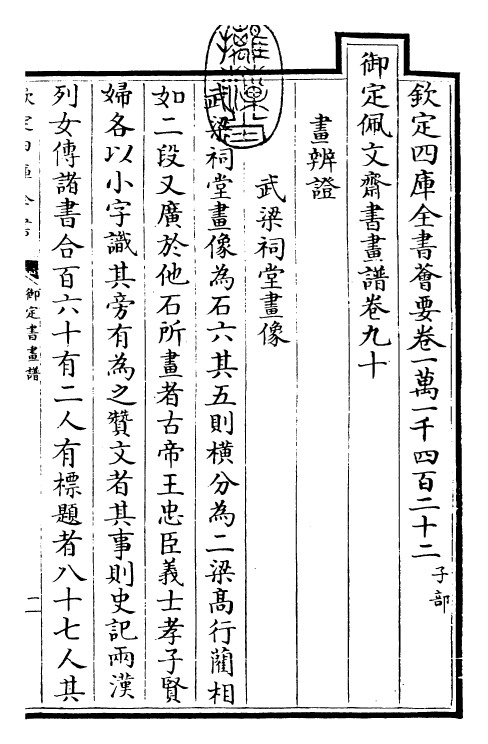 欽定四庫全書薈要卷一萬一千四百二十二 子部
御定佩文齋書畫譜卷九十
畫辨證
武梁祠堂畫像
武梁祠堂畫像為石六其五則橫分為二梁高行藺相
如二段又廣於他石所畫者古帝王忠臣義士孝子賢
婦各以小字識其旁有為之贊文者其事則史記兩漢
列女傳諸書合百六十有二人有標題者八十七人其
欽定四庫全書
御定書畫譜
一